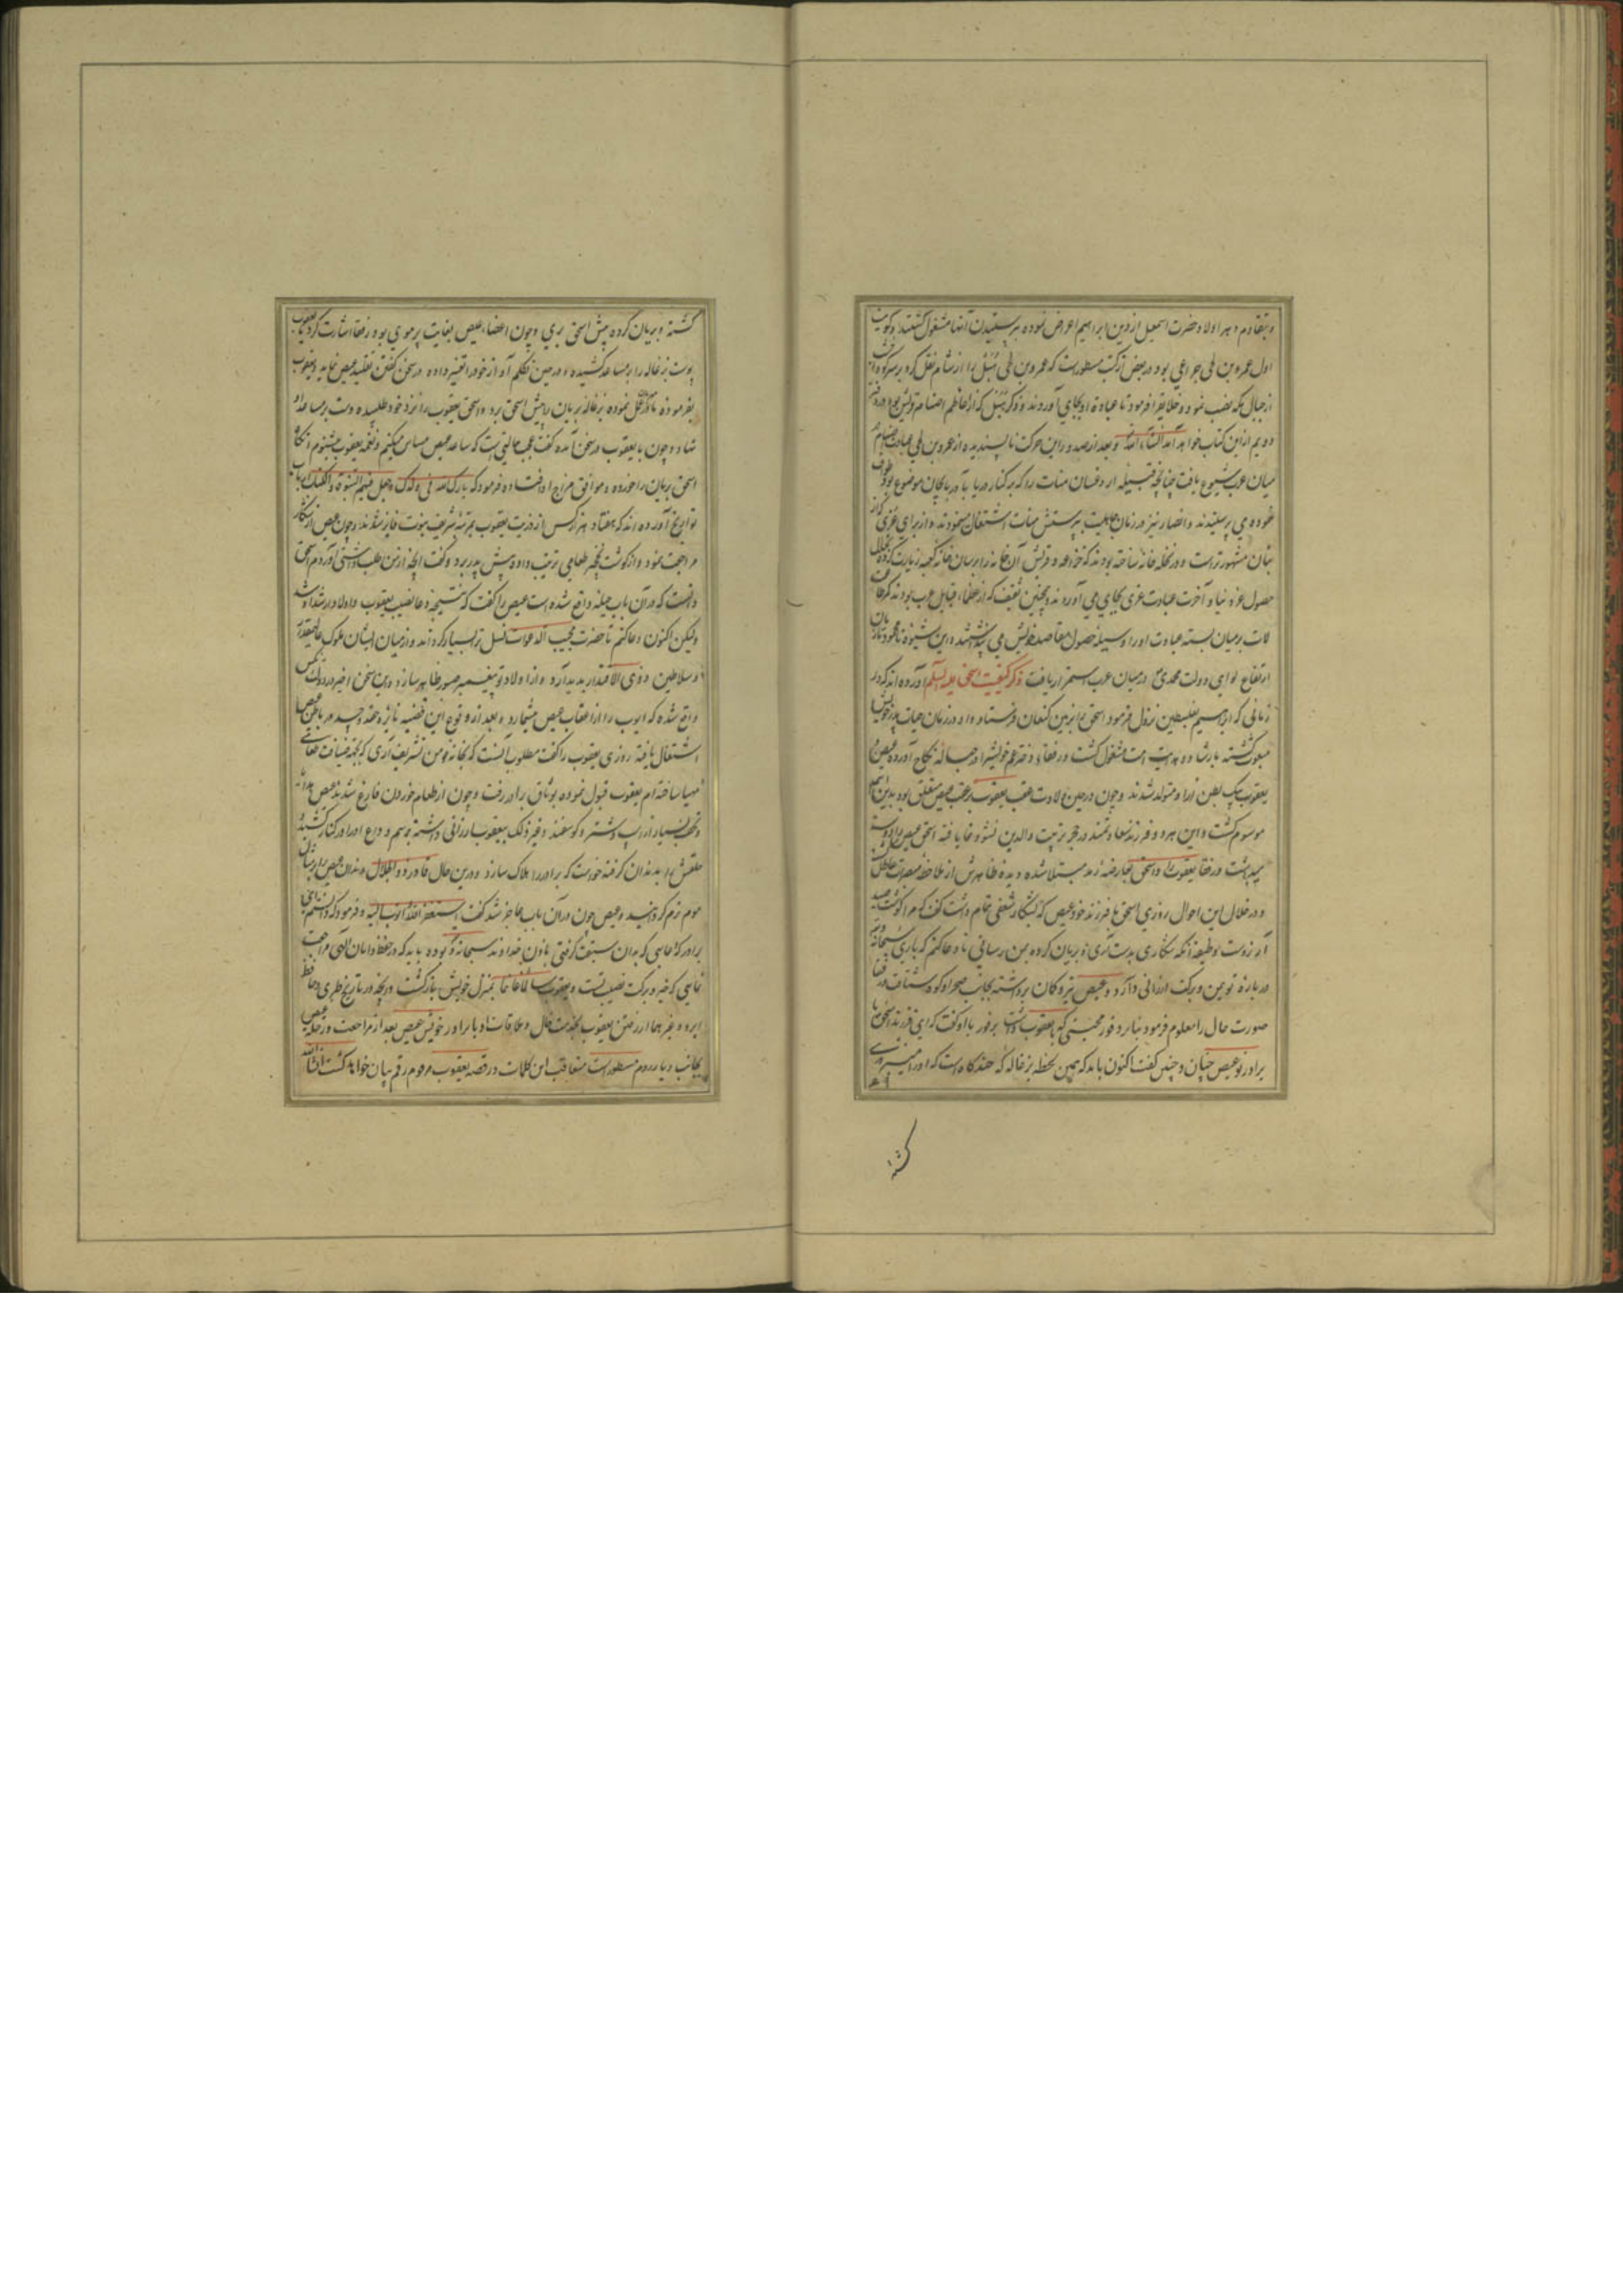 و بتقادم دهر اولاد حضرت اسمعیل از دین ابراهیم اعراض نموده بپرستیدن آنها مشغول گشتند و گویند
اول عمرو بن لحی خزاعی بود در بعض از کتب مسطورست که عمرو بن لحی هُبَل را از شام نقل کرد بر سر کوهی
از جبال مکه نصب نمود و خلایق را فرمود تا عبادة او بجای آوردند و ذکر هُبَل که از اعاظم اصنام قریش بود در دفتر
دویم از این کتاب خواهد آمد انشاء الله و بعد از صدور این حرکت ناپسندیده از عمرو بن لحی عبادت اصنام
میان عرب شیوع یافت چنانچه قبیله ازد و غسان منات را که بر کنار دریا بآن موضوع بود
می پرستیدند و انصار نیز در زمان جاهلیت بپرستش منات اشتغال مینمودند و از برای عُزّی که از
بتان مشهورترست در نخله خانه ساخته بودند که خزاعه و قریش آن خانه را بر سان خانه کعبه زیارت کرده
حصول عز دنیا و آخرت عبادت عزی بجای می آوردند و همچنین ثقیف که از عظماء قبایل عرب بودند کمر طاعت
لات بر میان بسته عبادت او را وسیله حصول مقاصد خویش می پنداشتند و این شیوه نا محمود تا زمان
ارتفاع لوای دولت محمدی در میان عرب استمرار یافت ذکر کیفیت اسحق علیه السلم آورده اند که در
زمانی که ابراهیم بفلسطین نزول فرمود اسحق بزمین کنعان فرستاد و او در زمان حیات پدر خویش
مبعوث گشته بارشاد و هدایت امت مشغول گشت و رفقاء دختر عم خویش را در حباله نکاح آورده عیص و
یعقوب بیک بطن از او متولد شدند و چون در حین ولادت عقب یعقوب بر عقب عیص متعلق بود بدین اسم
موسوم گشت و این هر دو فرزند سعادتمند در حجر تربیت والدین نشو و نما یافته اسحق عیص را دوست
میداشت و رفقا یعقوب را و اسحق بعارضه رمد مبتلا شده دیده ظاهرش از ملاحظه مبصرات عاطل
و در خلال این احوال روزی اسحق با فرزند خود عیص که بشکار شعفی تمام داشت گفت که مرا گوشت صید
آرزوست وظیفه آنکه شکاری بدست آری و بریان کرده بمن رسانی تا دعا کنم که باری سبحانه و تعالی
در باره تو یمن و برکت ارزانی دارد و عیص تیر و کمان برداشته بجانب صحرا و کوه شتافت و رفقا
صورت حال را معلوم فرمود بنابر وفور محبتی که با یعقوب داشت بر فور با او گفت که ای فرزند اسحق با
برادر تو عیص چنان و چنین گفت اکنون باید که همین لحظه بزغاله که چند گاه است که او را میپروری
کشته
کشته و بریان کرده پیش اسحق بری و چون اعضاء عیص بغایت پر موی بود رفقا اشارت کرد تا یعقوب
پوست بزغاله را بر ساعد کشیده و در حین تکلم آواز خود را تغییر داده در سخن گفتن تقلید عیص نماید و یعقوب
بفرموده مادر عمل نموده بزغاله بریان را پیش اسحق برد و اسحق یعقوب را نزد خود طلبیده دست بر ساعد او
نهاد و چون با یعقوب در سخن آمده گفت عجب حالتی است که ساعد عیص مساس میکنم و نغمه یعقوب میشنوم آنگاه
اسحق بریان را خورده و موافق مزاج او افتاده فرمود که بارک الله فی ولدک و جعل فیهم النبوة و الکتاب ارباب
تواریخ آورده اند که هفتاد هزار کس از ذریت یعقوب بمرتبه شریف نبوت فایز شدند و چون عیص از شکار
مراجعت نمود و از گوشت نخجیر طعامی ترتیب داده پیش پدر برد و گفت آنچه از من طلب داشتی آوردم اسحق
دانست که در آن باب حیله واقع شده است عیص را گفت که نتیجه دعا نصیب یعقوب و اولاد ارشد او شد
ولیکن اکنون دعا کنم تا حضرت مجیب الدعوات نسل ترا بسیار گرداند و از میان ایشان ملوک عالیمقدار
و سلاطین ذوی الاقتدار پدید آرد و از اولاد تو پیغمبر صبور ظاهر سازد و این سخن اخیر در
واقع شده که ایوب را از اعقاب عیص میشمارد و بعد از وقوع این قضیه نایره حقد و حسد در باطن عیص
اشتعال یافته روزی یعقوب را گفت مطلوب آنست که بخانه من تشریف آری که بجهة ضیافت تو
مهیا ساخته ام یعقوب قبول نموده بوثاق برادر رفت و چون از طعام خوردن فارغ شدند عیص هدایا
و تحف بسیار از اسب و اشتر و گوسفند و غیر ذلک بیعقوب ارزانی داشته برسم وداع او را در کنار کشید
حلقش را بدندان گرفته خواست که برادر را هلاک سازد و در این حال قادر ذو الجلال دندان عیص را بر مثال
موم نرم گردانید و عیص چون در آن باب عاجز شد گفت استغفر الله و اتوب الیه و فرمود که دانستم ای
برادر که دعایی که بدان سبقت گرفتی باذن خداوند سبحانه بوده باید که در حفظ و امان الهی مراجعت
نمایی که خیر و برکت نصیب تست و یعقوب سالما غانما بمنزل خویش بازگشت و آنچه در تاریخ طبری و حافظ
ابرو و غیرهما از رفتن یعقوب بخدمت خال و ملاقات او با برادر خویش عیص بعد از مراجعت و رحلت عیص
بجانب دیار روم مسطور است متعاقب این کلمات در قصه یعقوب مرقوم رقم بیان خواهد گشت انشا الله